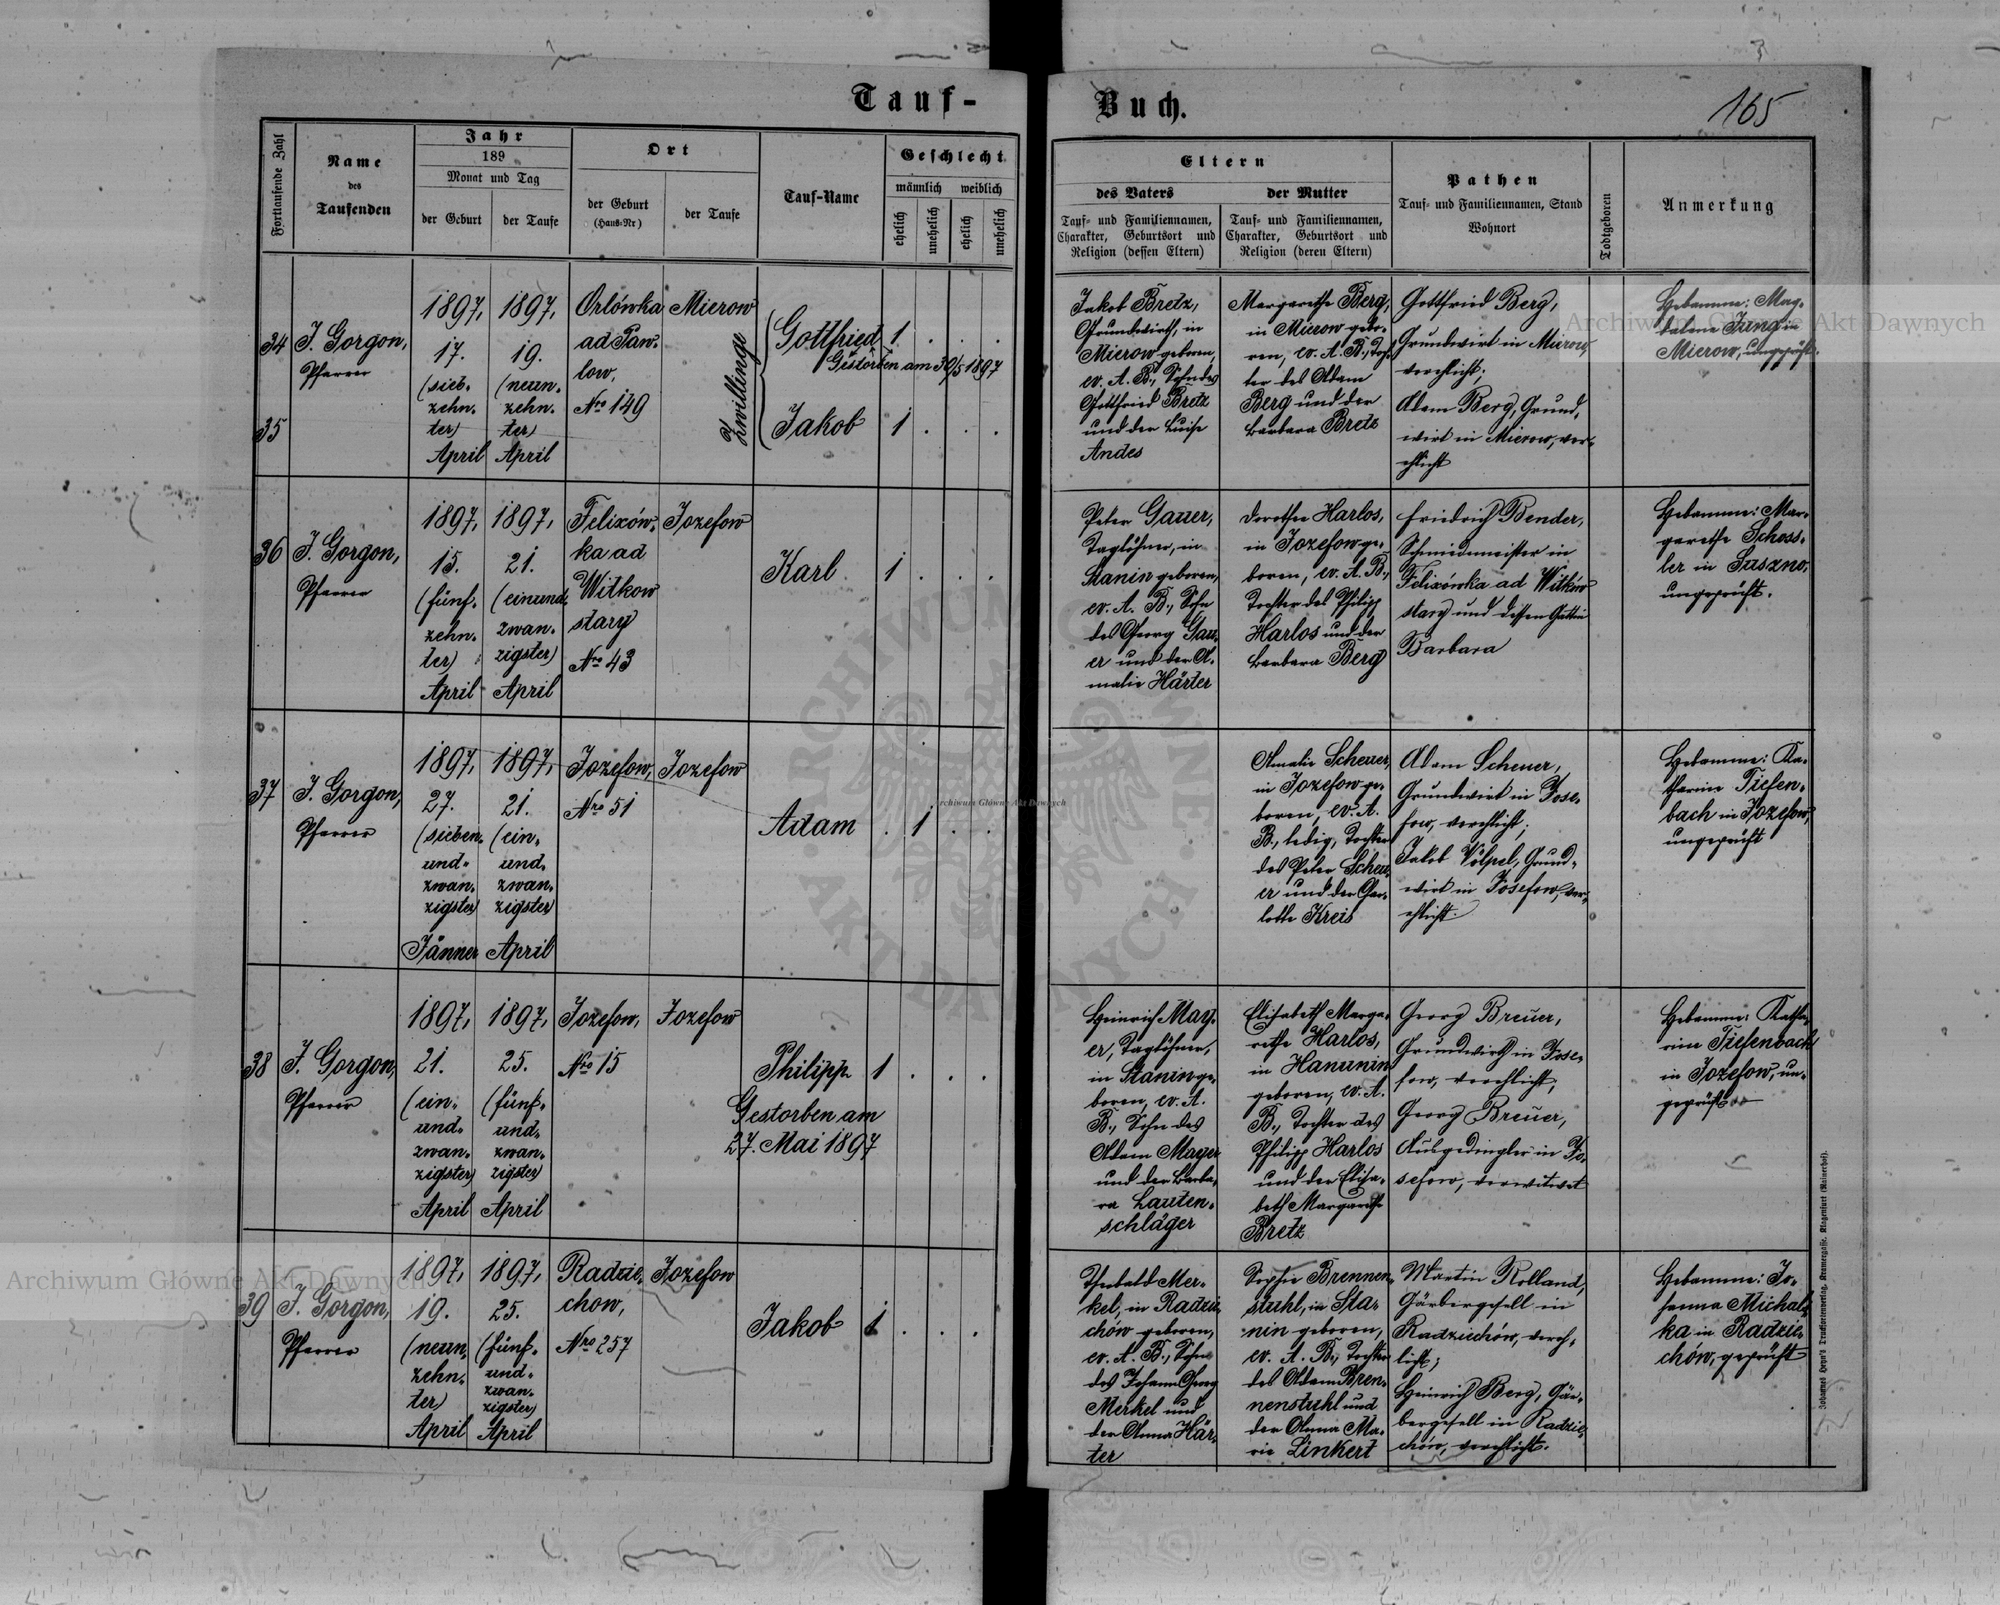 Tauf-
Buch.
165
Fortlaufende Zahl
Name
des
Taufenden
Jahr
189
Monat und Tag
der Geburt
der Taufe
Ort
der Geburt
(Haus-Nr)
der Taufe
Tauf-Name
Geschlecht
männlich
weiblich
ehelich
unehelich
ehelich
unehelich
Eltern
des Vaters
Tauf- und Familiennamen,
Charakter, Geburtsort und
Religion (dessen Eltern)
der Mutter
Tauf- und Familiennamen,
Charakter, Geburtsort und
Religion (deren Eltern)
Pathen
Tauf- und Familiennamen, Stand
Wohnort
Todtgeboren
Anmerkung
34
35
J. Gorgon,
Pfarrer
1897,
17.
(sieb-
zehn-
ter)
April
1897,
19.
(neun-
zehn-
ter)
April
Orlówka
ad Paw-
low,
Nro 149
Mierow
Zwillinge
Gottfried
1 . . .
Gestorben am 30/5 1897
Jakob
1 . . .
Jakob Bretz,
Grundwirth, in
Mierow geboren,
ev. A. B., Sohn des
Gottfried Bretz
und der Luise
Andes
Margarethe Berg,
in Mierow gebo-
ren, ev. A. B., Toch-
ter des Adam
Berg und der
Barbara Bretz
Gottfried Berg,
Grundwirt in Mierow,
verehlicht;
Adam Berg, Grund-
wirt in Mierow, ver-
ehlicht
Hebamme: Mag-
dalena Jung in
Mierow, ungeprüft.
36
J. Gorgon,
Pfarrer
1897,
15.
(fünf-
zehn-
ter)
April
1897,
21.
(einund-
zwan-
zigster)
April
Felixów-
ka ad
Witkow
stary
Nro 43
Jozefow
Karl
1 . . .
Peter Gauer,
Taglöhner, in
Stanin geboren,
ev. A. B., Sohn
des Georg Gau-
er und der A-
malie Härter
Dorothea Harlos,
in Jozefow ge-
boren, ev. A. B.,
Tochter des Philipp
Harlos und der
Barbara Berg
Friedrich Bender,
Schmiedemeister in
Felixówka ad Witków
stary und dessen Gattin
Barbara
Hebamme: Mar-
garethe Schoss-
ler in Suszno,
ungeprüft.
37
J. Gorgon,
Pfarrer
1897,
27.
(sieben-
und-
zwan-
zigster)
Jänner
1897,
21.
(ein-
und-
zwan-
zigster)
April
Jozefow,
Nro 51
Jozefow
Adam
. 1 . .
Amalie Scheuer,
in Jozefow ge-
boren, ev. A.
B., ledig, Tochter
des Peter Scheu-
er und der Char-
lotte Kreis
Adam Scheuer,
Grundwirt in Jose-
fow, verehlicht;
Jakob Völpel, Grund-
wirt in Josefow, ver-
ehlicht.
Hebamme: Ka-
tharina Tiefen-
bach in Jozefow,
ungeprüft
38
J. Gorgon,
Pfarrer
1897,
21.
(ein-
und-
zwan-
zigster)
April
1897,
25.
(fünf-
und-
zwan-
zigster)
April
Jozefow,
Nro 15
Jozefow
Philipp
1 . . .
Gestorben am
27. Mai 1897
Heinrich May-
er, Taglöhner,
in Stanin ge-
boren, ev. A.
B., Sohn des
Adam Mayer
und der Barba-
ra Lauten-
schläger
Elisabeth Marga-
rethe Harlos,
in Hanunin
geboren, ev. A.
B., Tochter des
Philipp Harlos
und der Elisa-
beth Margarethe
Bretz
Georg Breuer,
Grundwirt in Jose-
fow, verehlicht;
Georg Breuer,
Ausgedingler in Jo-
sefow, verwitwet
Hebamme: Katha-
rina Tiefenbach
in Jozefow, un-
geprüft
39
J. Gorgon,
Pfarrer
1897,
19.
(neun-
zehn-
ter)
April
1897,
25.
(fünf-
und-
zwan-
zigster)
April
Radzie-
chow,
Nro 257
Jozefow
Jakob
1 . . .
Theobald Mer-
kel, in Radzie-
chów geboren,
ev. A. B., Sohn
des Johann Georg
Merkel und
der Anna Här-
ter
Sophie Brennen-
stuhl, in Sta-
nin geboren,
ev. A. B., Tochter
des Adam Bren-
nenstuhl und
der Anna Ma-
rie Linkert
Martin Rolland,
Gärbergesell in
Radziechów, vereh-
licht;
Heinrich Berg, Gär-
bergesell in Radzie-
chów, verehlicht.
Hebamme: Jo-
hanna Michal-
ka in Radzie-
chów, geprüft
Archiwum Główne Akt Dawnych
Archiwum Główne Akt Dawnych
rchiwum Główne Akt Dawnych
ARCHIWUM GŁÓWNE · AKT DAWNYCH ·